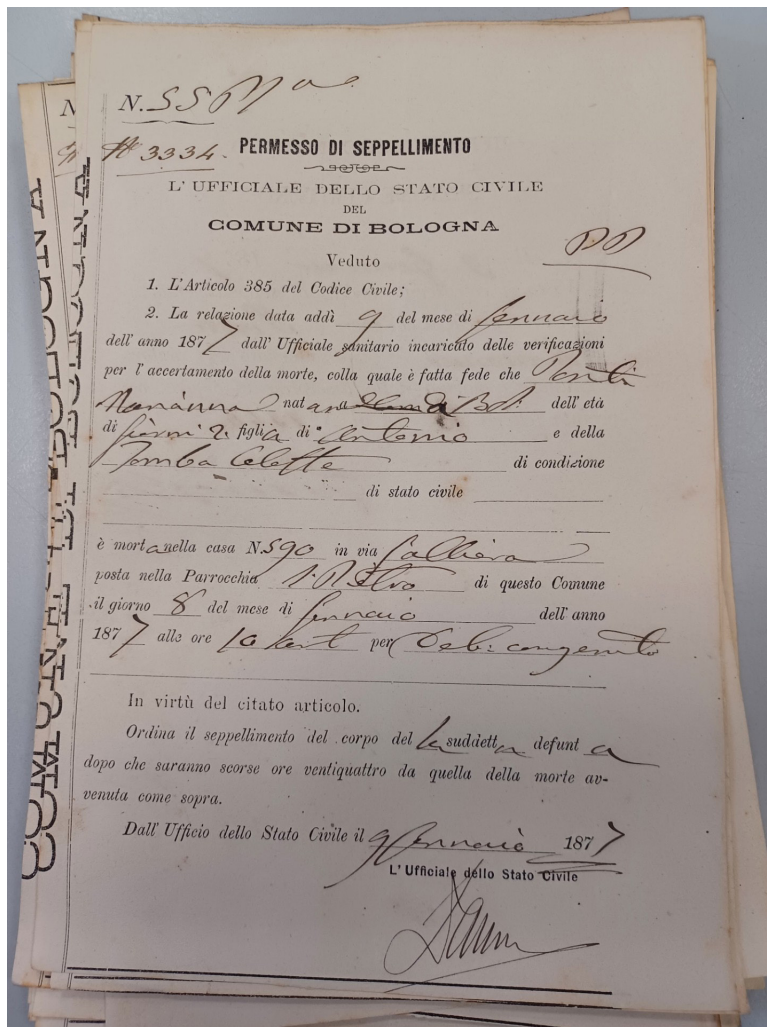 N. 55
N° 3334.
PERMESSO DI SEPPELLIMENTO
L'UFFICIALE DELLO STATO CIVILE
DEL
COMUNE DI BOLOGNA
PP
Veduto
1. L'Articolo 385 del Codice Civile;
2. La relazione data addì 9 del mese di Gennaio
dell'anno 1877 dall'Ufficiale sanitario incaricato delle verificazioni
per l'accertamento della morte, colla quale è fatta fede che
Marianna nata a Bol. dell'età
di giorni 2. figlia di Antonio e della
Tomba Celeste di condizione
di stato civile
è morta nella casa N. 590 in via Galliera
posta nella Parrocchia S. Pietro di questo Comune
il giorno 8 del mese di Gennaio dell'anno
1877 alle ore 10 ant per Deb: congenita
In virtù del citato articolo.
Ordina il seppellimento del corpo del la suddetta defunta
dopo che saranno scorse ore ventiquattro da quella della morte av-
venuta come sopra.
Dall'Ufficio dello Stato Civile il 9 Gennaio 1877
L'Ufficiale dello Stato Civile